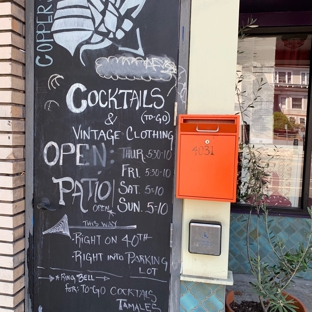 COPPER
COCKTAILS
(TO-GO)
&
VINTAGE CLOTHING
OPEN: THUR. 5:30-10
FRI. 5:30-10
PATIO SAT. 5-10
OPEN SUN. 5-10
THIS WAY
-RIGHT ON 40TH
-RIGHT INTO PARKING
LOT
*RING BELL
FOR: TO-GO COCKTAILS
TAMALES
4031